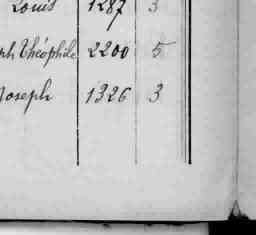 Louis 1287 3
ph Théophile 2200 5
Joseph 1326 3